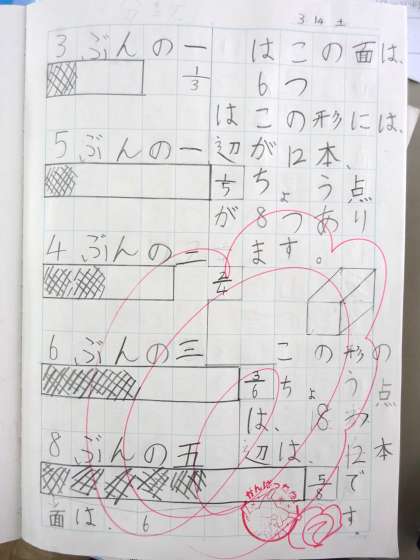 3 14 土
3ぶんの一
1/3
5ぶんの一
1/5
4ぶんの二
2/4
6ぶんの三
3/6
8ぶんの五
5/8
はこの面は、
6つ
はこの形には、
辺が12本、
ちょう点
が8つあり
ます。
この形の
ちょう点
は、8つ
辺は、12本
で
面は、6
す。